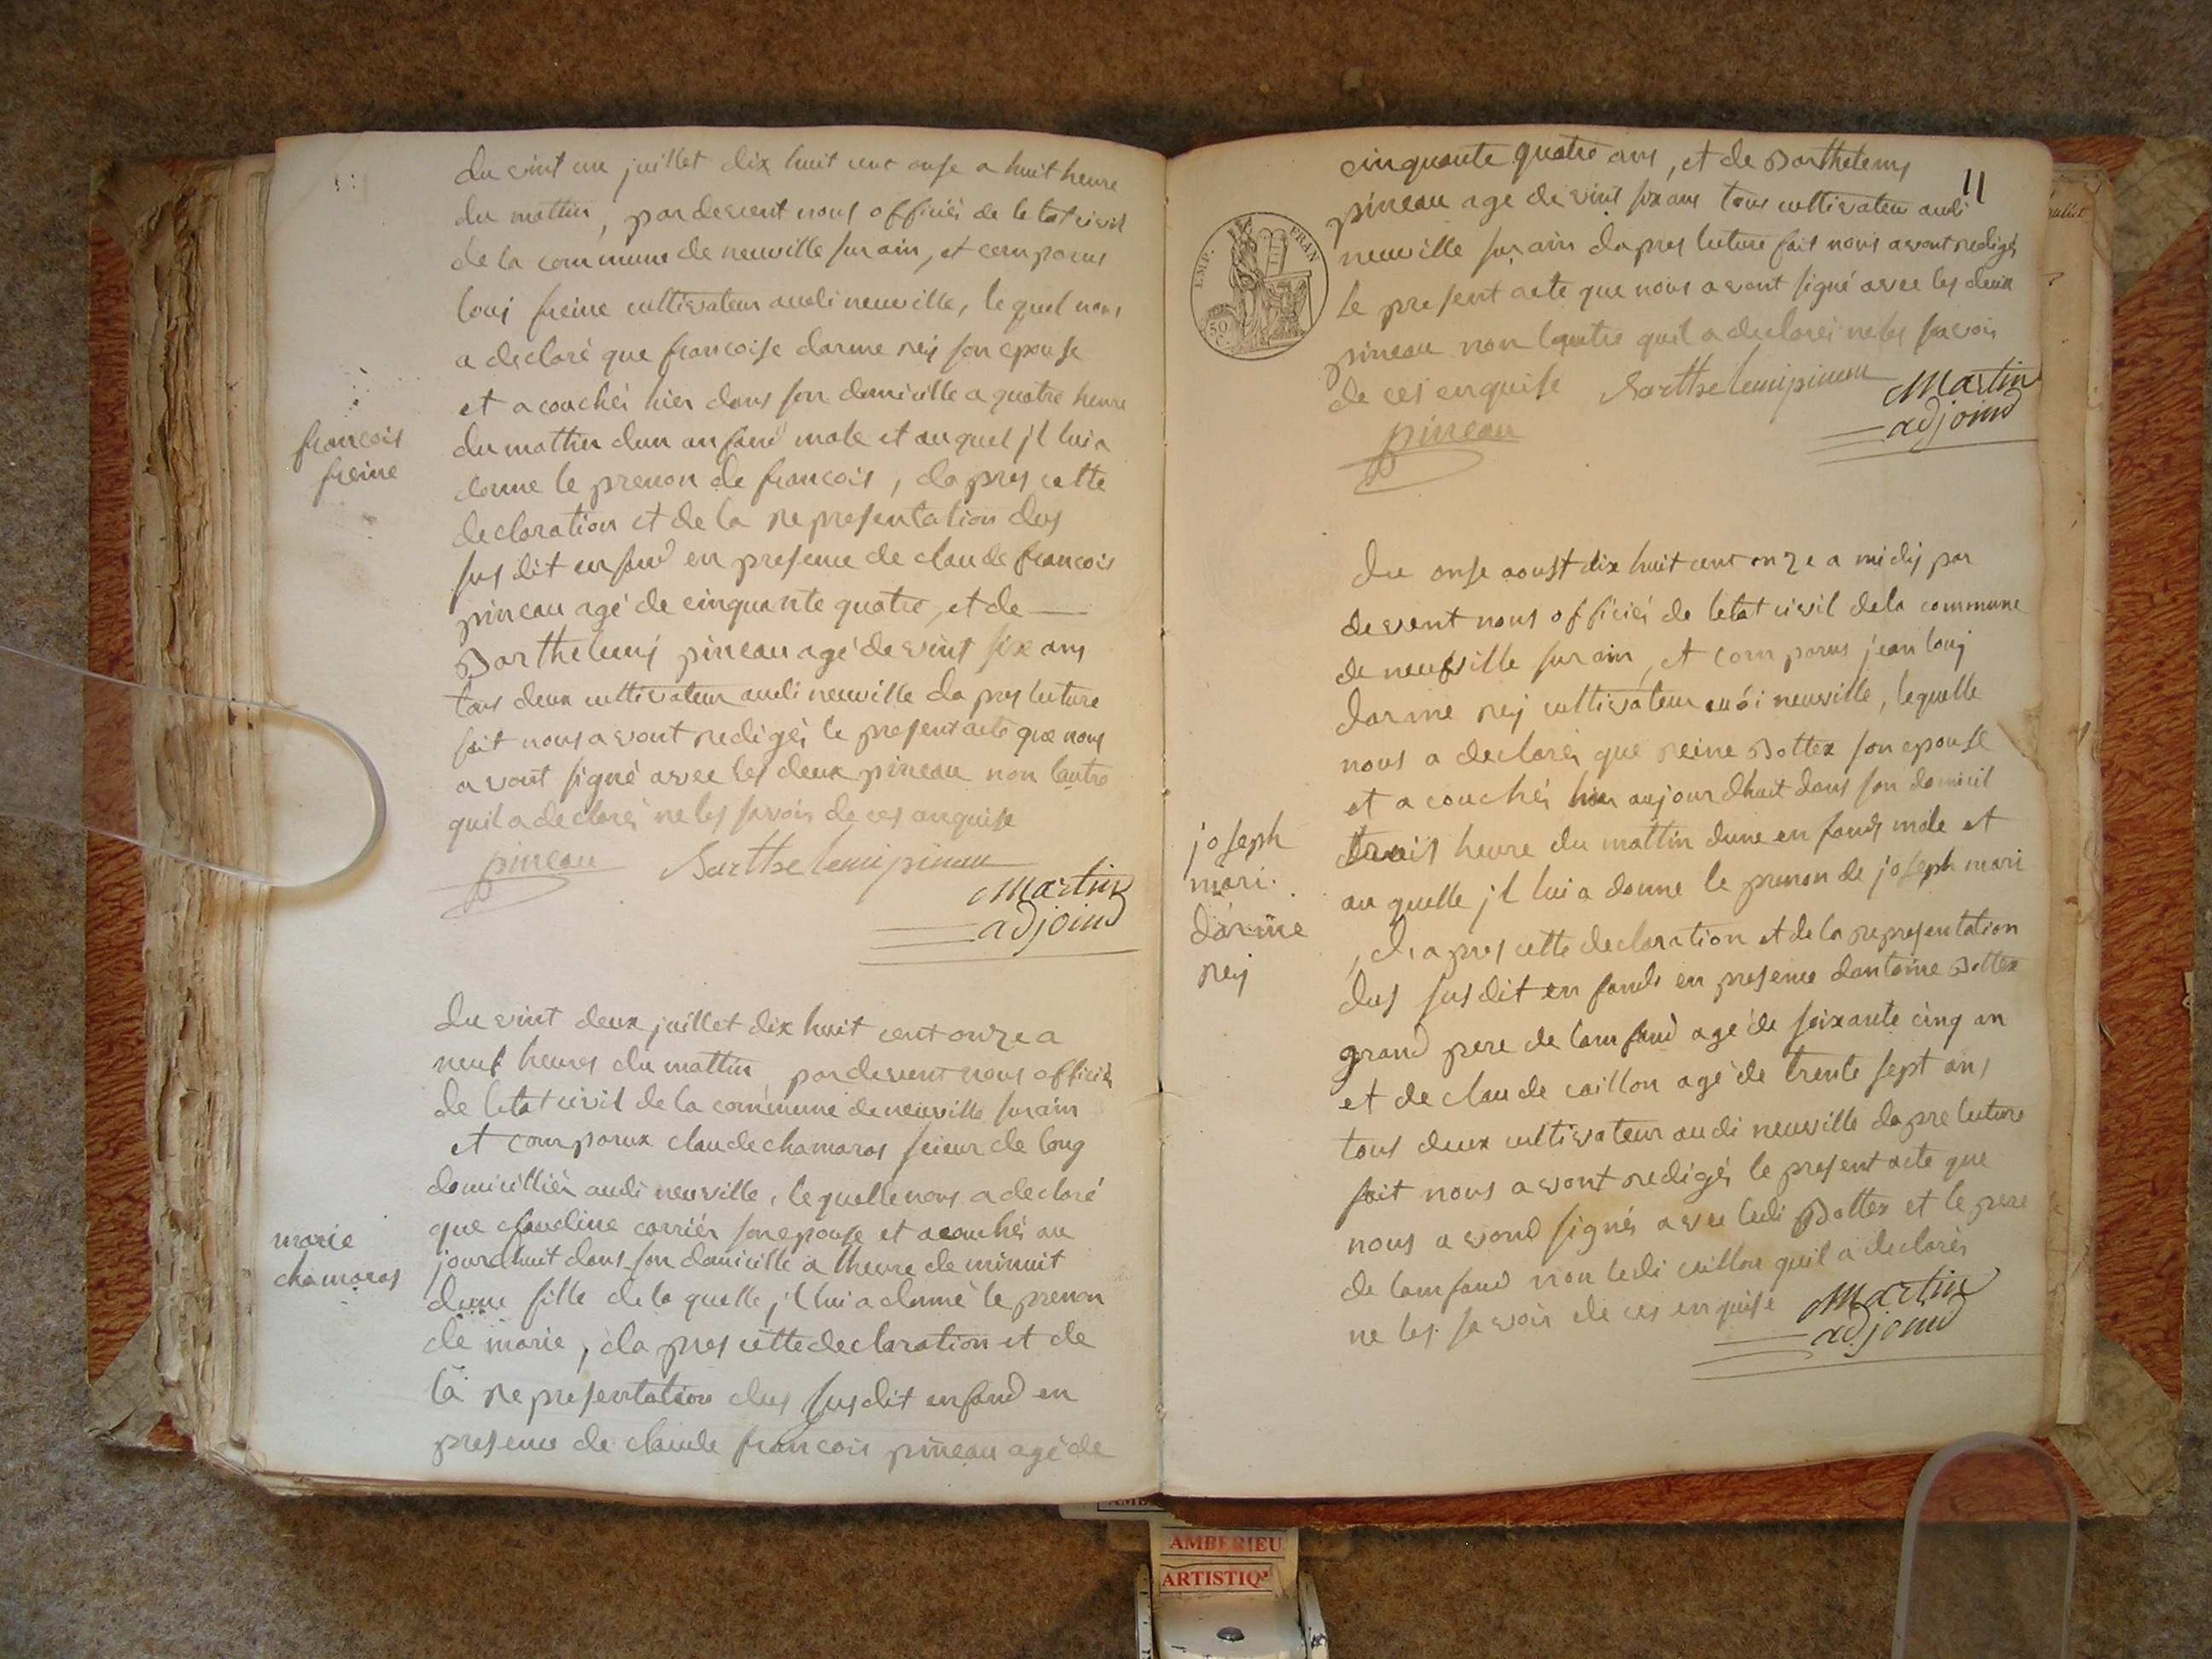 du vint un juillet dix huit cent onse a huit heure
du mattin, pardevent nous officiér de le tat civil
de la commune de neuville sur ain, et comparus
louj freine cultivateur audi neuville, le quel nous
a declaré que francoise darme rej son epouse
et a couchér hier dans son domicille a quatre heure
françois
freine
du mattin dun anfand male et auquel jl lui a
donne le prenon de francois, da pres cette
declaration et de la representation dus
sus dit enfand en presence de claude francois
pineau agé de cinquante quatre, et de —
Barthelemj pineau agé de vint six ans
tous deux cultivateur audi neuville da pres luture
fait nous avont redigér le present acte que nous
avont signé avec les deux pineau non lautre
quil a declarér ne les savoir de ces anquise
pineau Barthelemi pineau
Martin
adjoind
du vint deux juillet dix huit cent onze a
neuf heures du mattin pardevent nous officiér
de letat civil de la commune de neuville sur ain
et comparux claude chamaras scieur de long
domicilliér audi neuville, le quelle nous a declaré
que claudine carriér son epouse et acouchér au
marie
chamaras
jourdhuit dans son domicille a lheure de minuit
dune fille de la quelle jl lui a donné le prenon
de marie, da pres cette declaration et de
la representation dus susdit enfand en
presence de claude francois pineau agé de
11
cinquante quatre ans, et de Barthelemj
pineau age de vint six ans tous cultivateu audi
neuville sur ain dapres luture fait nous avont redigér
le present acte que nous avont signé avec les deux
pineau non lautre quil a declarér ne les savoir
de ces enquise Barthelemi pineau Martin
pineau adjoind
EMP. FRAN
50
du onse aoust dix huit cent onze a midij par
devent nous officiér de letat civil dela commune
de neufville sur ain, et comparus jean louj
darme rej cultivateur audi neuville, lequelle
nous a declarér que reine Bottex son epouse
et a couchér hier aujourdhuit dans son domicil
joseph
mari
darme
rej
trois heure du mattin dune enfands male et
au quelle jl lui a donne le prenon de joseph mari
, da pres cette declaration et de la representation
dus susdit enfands en presence dantoine Bottex
grand pere de lamfand agé de soixante cinq an
et de claude caillon agé de trente sept ans
tous deux cultivateur audi neuville da pre luture
fait nous avont redigér le present acte que
nous a vond signér avec ledi Bottex et le pere
de lamfand non ledi caillon quil a declarér
ne les savoir de ces enquise Martin
adjoind
AMBERIEU
ARTISTIQ